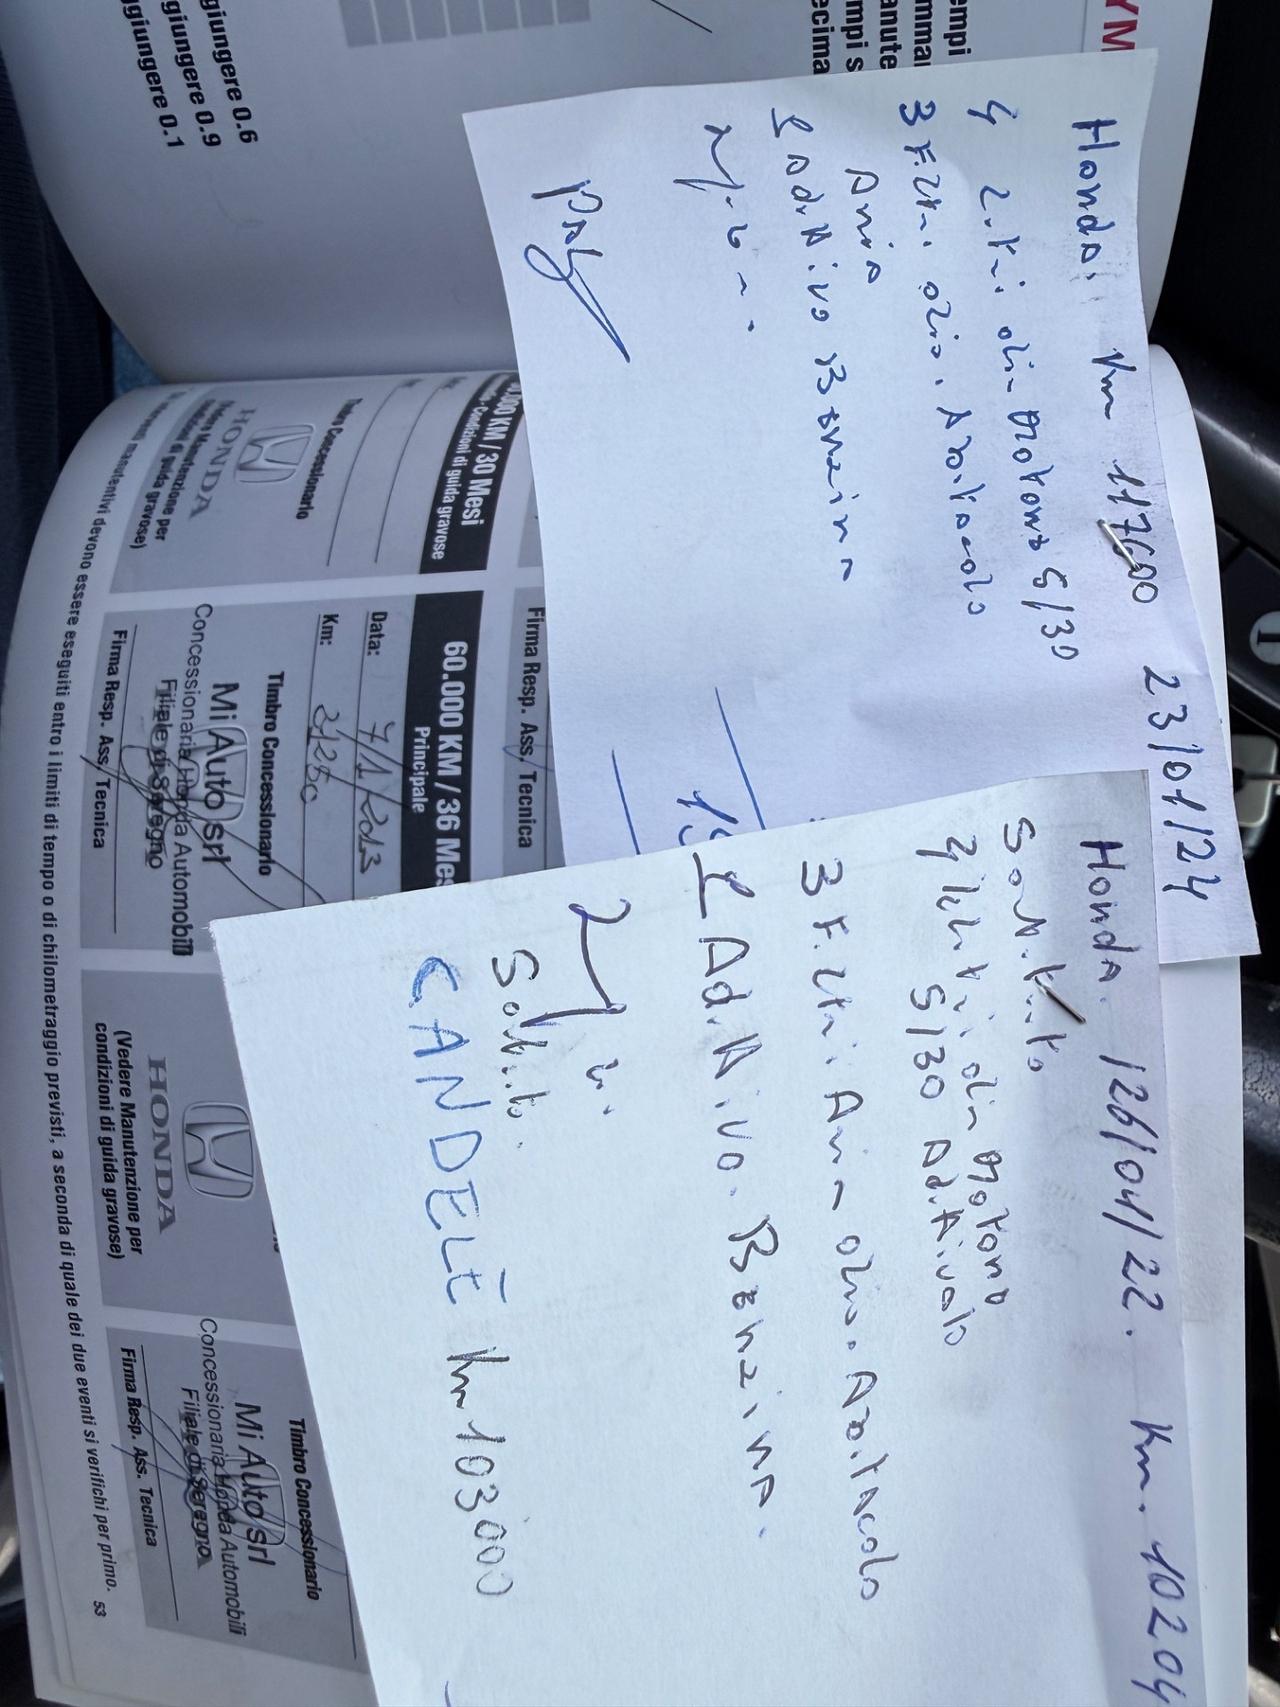 YM
empi
giungere 0.6
giungere 0.9
ggiungere 0.1
Honda. Km 117600 23/01/24
4 litri olio motore 5/30
3 Filtri olio. Abitacolo
Aria
1 Additivo Benzina
Honda. 126/04/22. Km. 10204
Sostituito
4 litri olio motore
5/30 Additivato
3 Filtri Aria olio. Abitacolo
1 Additivo. Benzina.
CANDELE Km 103000
.000 KM / 30 Mesi
- Condizioni di guida gravose
Timbro Concessionario
HONDA
(Vedere Manutenzione per
condizioni di guida gravose)
Firma Resp. Ass. Tecnica
60.000 KM / 36 Mes
Principale
Data: 7/1/2013
Km:
Timbro Concessionario
Mi Auto srl
Concessionaria Honda Automobili
Filiale di Seregno
Firma Resp. Ass. Tecnica
HONDA
(Vedere Manutenzione per
condizioni di guida gravose)
Timbro Concessionario
Mi Auto srl
Concessionaria Honda Automobili
Filiale di Seregno
Firma Resp. Ass. Tecnica
manutentivi devono essere eseguiti entro i limiti di tempo o di chilometraggio previsti, a seconda di quale dei due eventi si verifichi per primo.
53